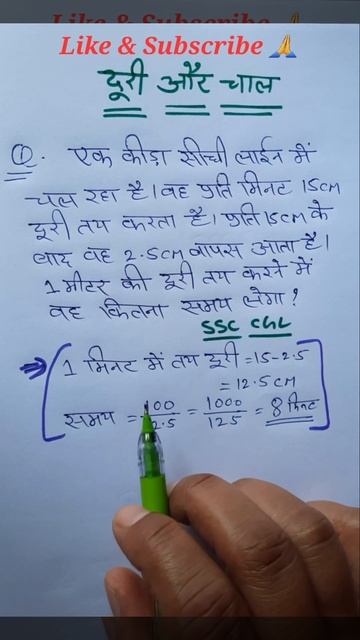 Like & Subscribe 🙏
Like & Subscribe 🙏
दूरी और चाल
①. एक कीड़ा सीधी लाईन में
चल रहा है। वह प्रति मिनट 15cm
दूरी तय करता है। प्रति 15cm के
बाद वह 2.5cm वापस आता है।
1 मीटर की दूरी तय करने में
वह कितना समय लेगा?
SSC CGL
1 मिनट में तय दूरी = 15-2.5
= 12.5 CM
समय = 100/12.5 = 1000/125 = 8 मिनट